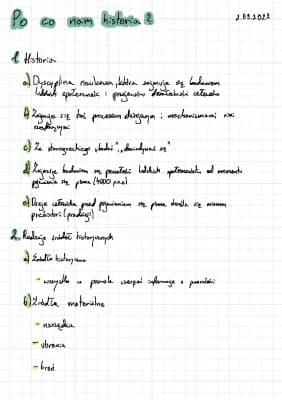 Po co nam historia?
2.09.2021
1. Historia
a) Dyscyplina naukowa, która zajmuje się badaniem
ludzkich społeczności i przejawów działalności człowieka
b) Zajmuje się też procesem dziejowym i mechanizmami nim
c) Ze starogreckiego "badać", "dowiadywać się"
d) Zajmuje badaniem się przeszłości ludzkich społeczeństw od momentu
pojawienia się pisma (4000 p.n.e)
e) Dzieje człowieka przed pojawieniem się pisma określa się mianem
prehistorii (pradziejów)
2. Rodzaje źródeł historycznych
a) Źródła historyczne
- wszystko co pozwala czerpać informacje o przeszłości
b) Źródła materialne
- narzędzia
- ubrania
- broń